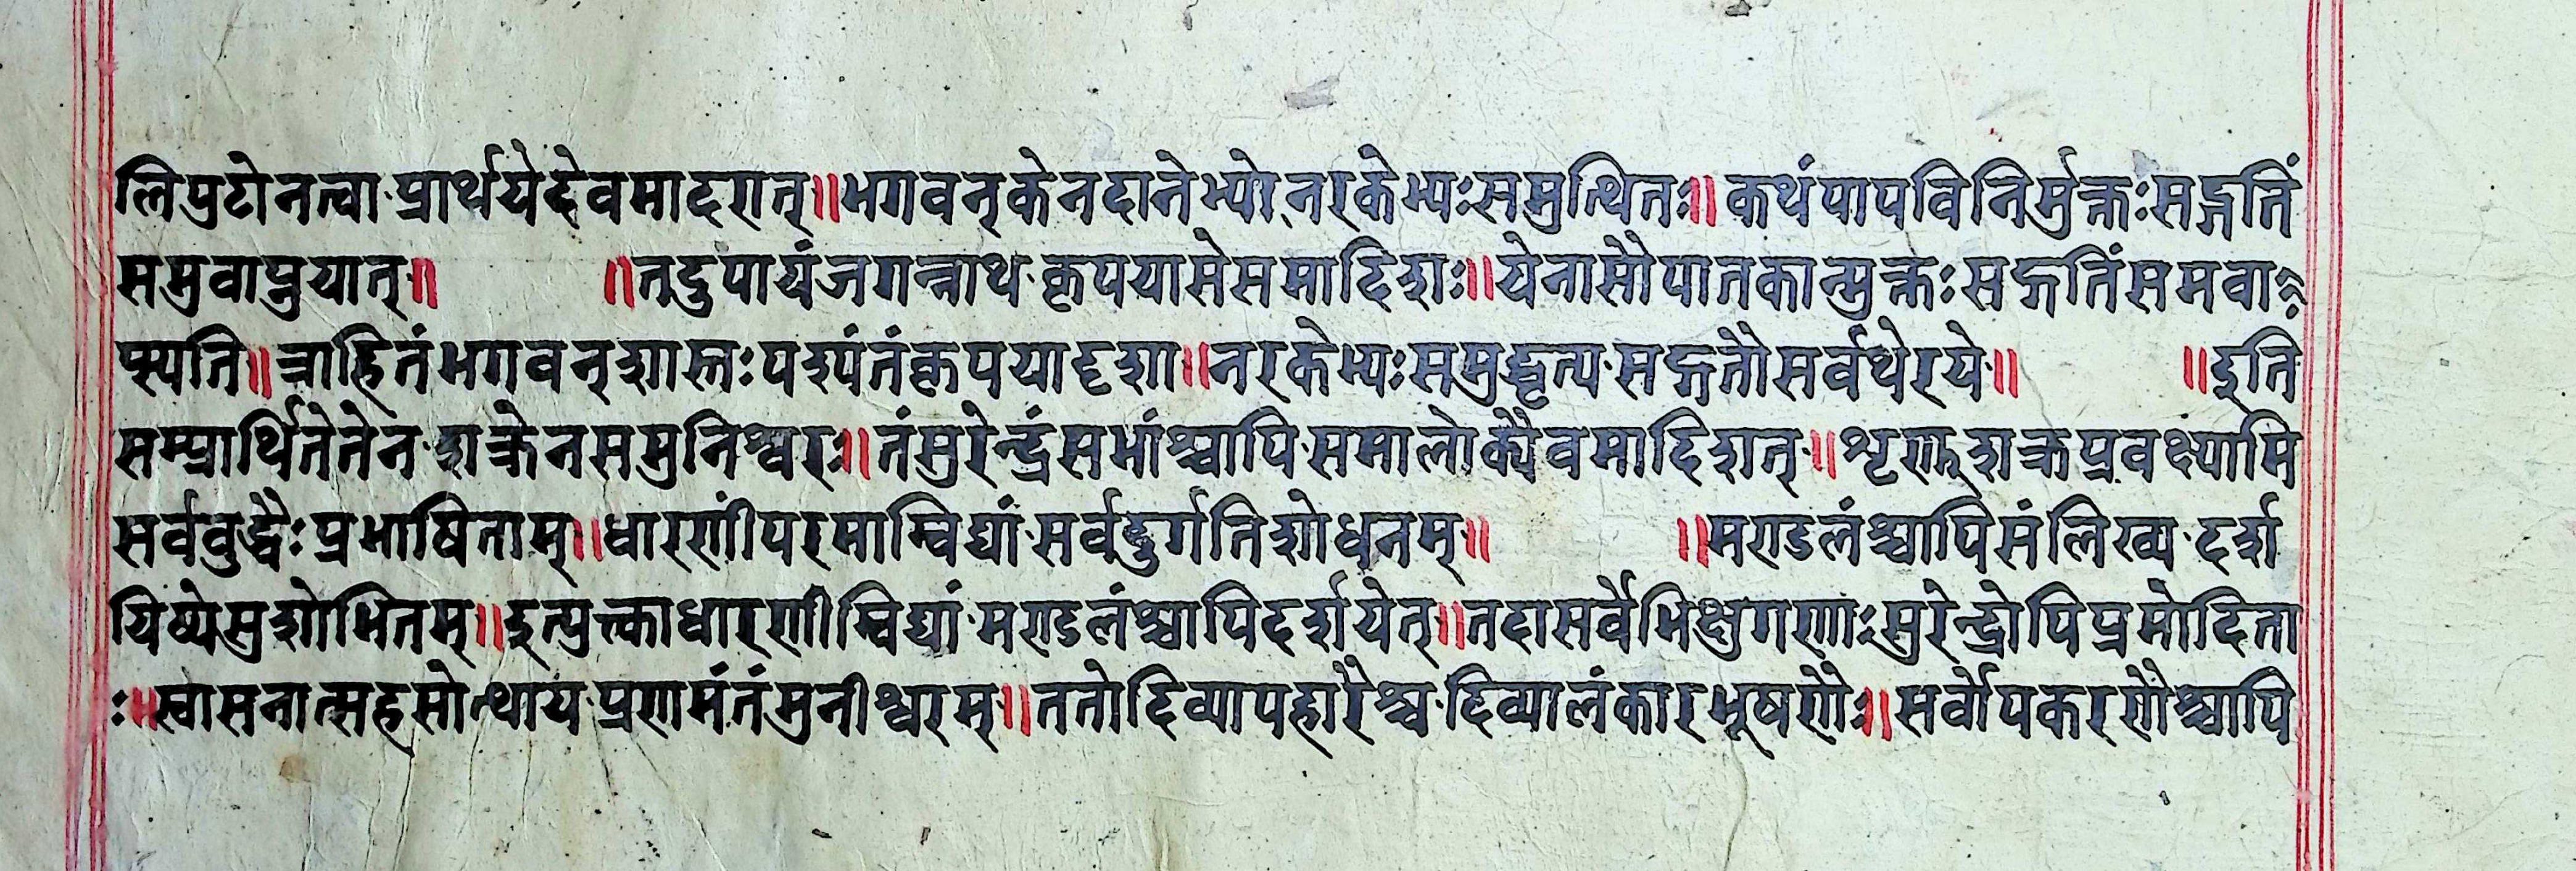 लिपुटोनत्वा·प्रार्थयेदेवमादरात्॥भगवन्केनदानेभ्योनरकेभ्यःसमुत्थितः॥कथंपापविनिर्मुक्तःसद्गतिं
समुवाप्नुयात्॥ ॥तदुपायंजगन्नाथ·कृपयासेसमादिशः॥येनासौपातकान्मुक्तःसद्गतिंसमवा
प्स्यति॥त्राहितंभगवन्शास्तःपश्यंतंकृपयादृशा॥नरकेभ्यःसमुद्धृत्य·सद्गतौसर्वथेरये॥ ॥इति
सम्प्रार्थितेतेन·शक्रेनसमुनिश्वरः॥तंसुरेन्द्रंसभांश्चापि·समालोक्यैवमादिशत्॥शृणुशक्रप्रवक्ष्यामि
सर्ववुद्धैःप्रभाषिताम्॥धारणींपरमाम्विद्यां·सर्वदुर्गतिशोधनम्॥ ॥मण्डलंश्चापिसंलिख्य·दर्श
यिष्येसुशोभितम्॥इत्युक्त्काधारणीम्विद्यां·मण्डलंश्चापिदर्शयेत्॥तदासर्वेभिक्षुगणाःसुरेन्द्रोपिप्रमोदिता
ः॥स्वासनात्सहसोत्थाय·प्रणमंतंमुनीश्वरम्॥ततोदिव्यापहारैश्च·दिव्यालंकारभूषणैः॥सर्वोपकरणैश्चापि